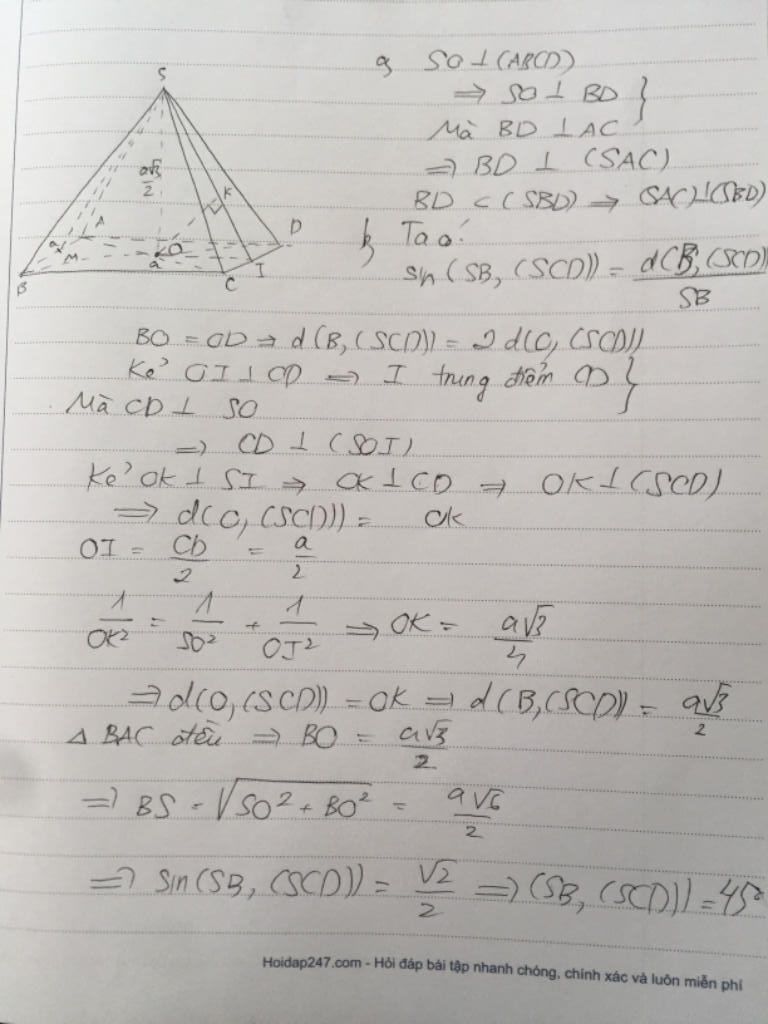 S
a√3/2
K
A
D
a
O
M
a
I
B
C
a, SO ⊥ (ABCD)
⇒ SO ⊥ BD }
Mà BD ⊥ AC
⇒ BD ⊥ (SAC)
BD ⊂ (SBD) ⇒ (SAC)⊥(SBD)
b, Ta có:
sin(SB, (SCD)) = d(B, (SCD))/SB
BO = OD ⇒ d(B, (SCD)) = 2 d(O, (SCD))
Kẻ OI ⊥ CD ⇒ I trung điểm CD }
Mà CD ⊥ SO
⇒ CD ⊥ (SOI)
Kẻ OK ⊥ SI ⇒ OK ⊥ CD ⇒ OK ⊥ (SCD)
⇒ d(O, (SCD)) = OK
OI = CD/2 = a/2
1/OK² = 1/SO² + 1/OI² ⇒ OK = a√3/4
⇒ d(O, (SCD)) = OK ⇒ d(B, (SCD)) = a√3/2
Δ BAC đều ⇒ BO = a√3/2
⇒ BS = √(SO² + BO²) = a√6/2
⇒ sin(SB, (SCD)) = √2/2 ⇒ (SB, (SCD)) = 45°
Hoidap247.com - Hỏi đáp bài tập nhanh chóng, chính xác và luôn miễn phí